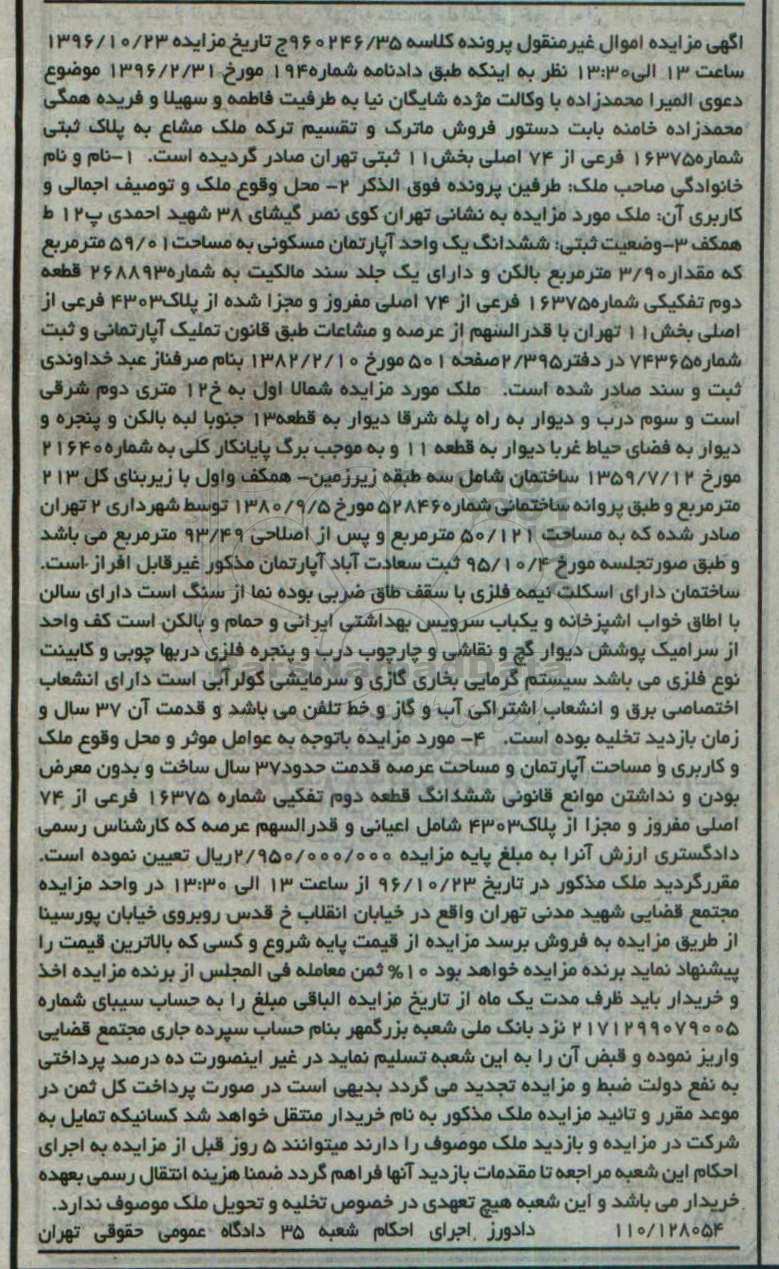 آگهی مزایده اموال غیرمنقول پرونده کلاسه ۹۶۰۲۴۶/۳۵ج تاریخ مزایده ۱۳۹۶/۱۰/۲۳
ساعت ۱۳ الی۱۳:۳۰ نظر به اینکه طبق دادنامه شماره۱۹۴ مورخ ۱۳۹۶/۲/۳۱ موضوع
دعوی المیرا محمدزاده با وکالت مژده شایگان نیا به طرفیت فاطمه و سهیلا و فریده همگی
محمدزاده خامنه بابت دستور فروش ماترک و تقسیم ترکه ملک مشاع به پلاک ثبتی
شماره۱۶۳۷۵ فرعی از ۷۴ اصلی بخش۱۱ ثبتی تهران صادر گردیده است. ۱-نام و نام
خانوادگی صاحب ملک: طرفین پرونده فوق الذکر ۲- محل وقوع ملک و توصیف اجمالی و
کاربری آن: ملک مورد مزایده به نشانی تهران کوی نصر گیشای ۳۸ شهید احمدی پ۱۲ ط
همکف ۳-وضعیت ثبتی: ششدانگ یک واحد آپارتمان مسکونی به مساحت۵۹/۰۱ مترمربع
که مقدار۳/۹۰ مترمربع بالکن و دارای یک جلد سند مالکیت به شماره۲۶۸۸۹۳ قطعه
دوم تفکیکی شماره۱۶۳۷۵ فرعی از ۷۴ اصلی مفروز و مجزا شده از پلاک۴۳۰۳ فرعی از
اصلی بخش۱۱ تهران با قدرالسهم از عرصه و مشاعات طبق قانون تملیک آپارتمانی و ثبت
شماره۷۴۳۶۵ در دفتر۲/۳۹۵صفحه ۵۰۱ مورخ ۱۳۸۲/۲/۱۰ بنام صرفناز عبد خداوندی
ثبت و سند صادر شده است. ملک مورد مزایده شمالا اول به خ۱۲ متری دوم شرقی
است و سوم درب و دیوار به راه پله شرقا دیوار به قطعه۱۳ جنوبا لبه بالکن و پنجره و
دیوار به فضای حیاط غربا دیوار به قطعه ۱۱ و به موجب برگ پایانکار کلی به شماره۲۱۶۴۰
مورخ ۱۳۵۹/۷/۱۲ ساختمان شامل سه طبقه زیرزمین- همکف واول با زیربنای کل ۲۱۳
مترمربع و طبق پروانه ساختمانی شماره۵۲۸۴۶ مورخ ۱۳۸۰/۹/۵ توسط شهرداری ۲ تهران
صادر شده که به مساحت ۵۰/۱۲۱ مترمربع و پس از اصلاحی ۹۳/۴۹ مترمربع می باشد
و طبق صورتجلسه مورخ ۹۵/۱۰/۴ ثبت سعادت آباد آپارتمان مذکور غیرقابل افراز است.
ساختمان دارای اسکلت نیمه فلزی با سقف طاق ضربی بوده نما از سنگ است دارای سالن
با اطاق خواب اشپزخانه و یکباب سرویس بهداشتی ایرانی و حمام و بالکن است کف واحد
از سرامیک پوشش دیوار گچ و نقاشی و چارچوب درب و پنجره فلزی دربها چوبی و کابینت
نوع فلزی می باشد سیستم گرمایی بخاری گازی و سرمایشی کولرآبی است دارای انشعاب
اختصاصی برق و انشعاب اشتراکی آب و گاز و خط تلفن می باشد و قدمت آن ۳۷ سال و
زمان بازدید تخلیه بوده است. ۴- مورد مزایده باتوجه به عوامل موثر و محل وقوع ملک
و کاربری و مساحت آپارتمان و مساحت عرصه قدمت حدود۳۷ سال ساخت و بدون معرض
بودن و نداشتن موانع قانونی ششدانگ قطعه دوم تفکیی شماره ۱۶۳۷۵ فرعی از ۷۴
اصلی مفروز و مجزا از پلاک۴۳۰۳ شامل اعیانی و قدرالسهم عرصه که کارشناس رسمی
دادگستری ارزش آنرا به مبلغ پایه مزایده ۲/۹۵۰/۰۰۰/۰۰۰ریال تعیین نموده است.
مقررگردید ملک مذکور در تاریخ ۹۶/۱۰/۲۳ از ساعت ۱۳ الی ۱۳:۳۰ در واحد مزایده
مجتمع قضایی شهید مدنی تهران واقع در خیابان انقلاب خ قدس روبروی خیابان پورسینا
از طریق مزایده به فروش برسد مزایده از قیمت پایه شروع و کسی که بالاترین قیمت را
پیشنهاد نماید برنده مزایده خواهد بود ۱۰% ثمن معامله فی المجلس از برنده مزایده اخذ
و خریدار باید ظرف مدت یک ماه از تاریخ مزایده الباقی مبلغ را به حساب سیبای شماره
۲۱۷۱۲۹۹۰۷۹۰۰۵ نزد بانک ملی شعبه بزرگمهر بنام حساب سپرده جاری مجتمع قضایی
واریز نموده و قبض آن را به این شعبه تسلیم نماید در غیر اینصورت ده درصد پرداختی
به نفع دولت ضبط و مزایده تجدید می گردد بدیهی است در صورت پرداخت کل ثمن در
موعد مقرر و تائید مزایده ملک مذکور به نام خریدار منتقل خواهد شد کسانیکه تمایل به
شرکت در مزایده و بازدید ملک موصوف را دارند میتوانند ۵ روز قبل از مزایده به اجرای
احکام این شعبه مراجعه تا مقدمات بازدید آنها فراهم گردد ضمنا هزینه انتقال رسمی بعهده
خریدار می باشد و این شعبه هیچ تعهدی در خصوص تخلیه و تحویل ملک موصوف ندارد.
۱۱۰/۱۲۸۰۵۴ دادورز اجرای احکام شعبه ۳۵ دادگاه عمومی حقوقی تهران